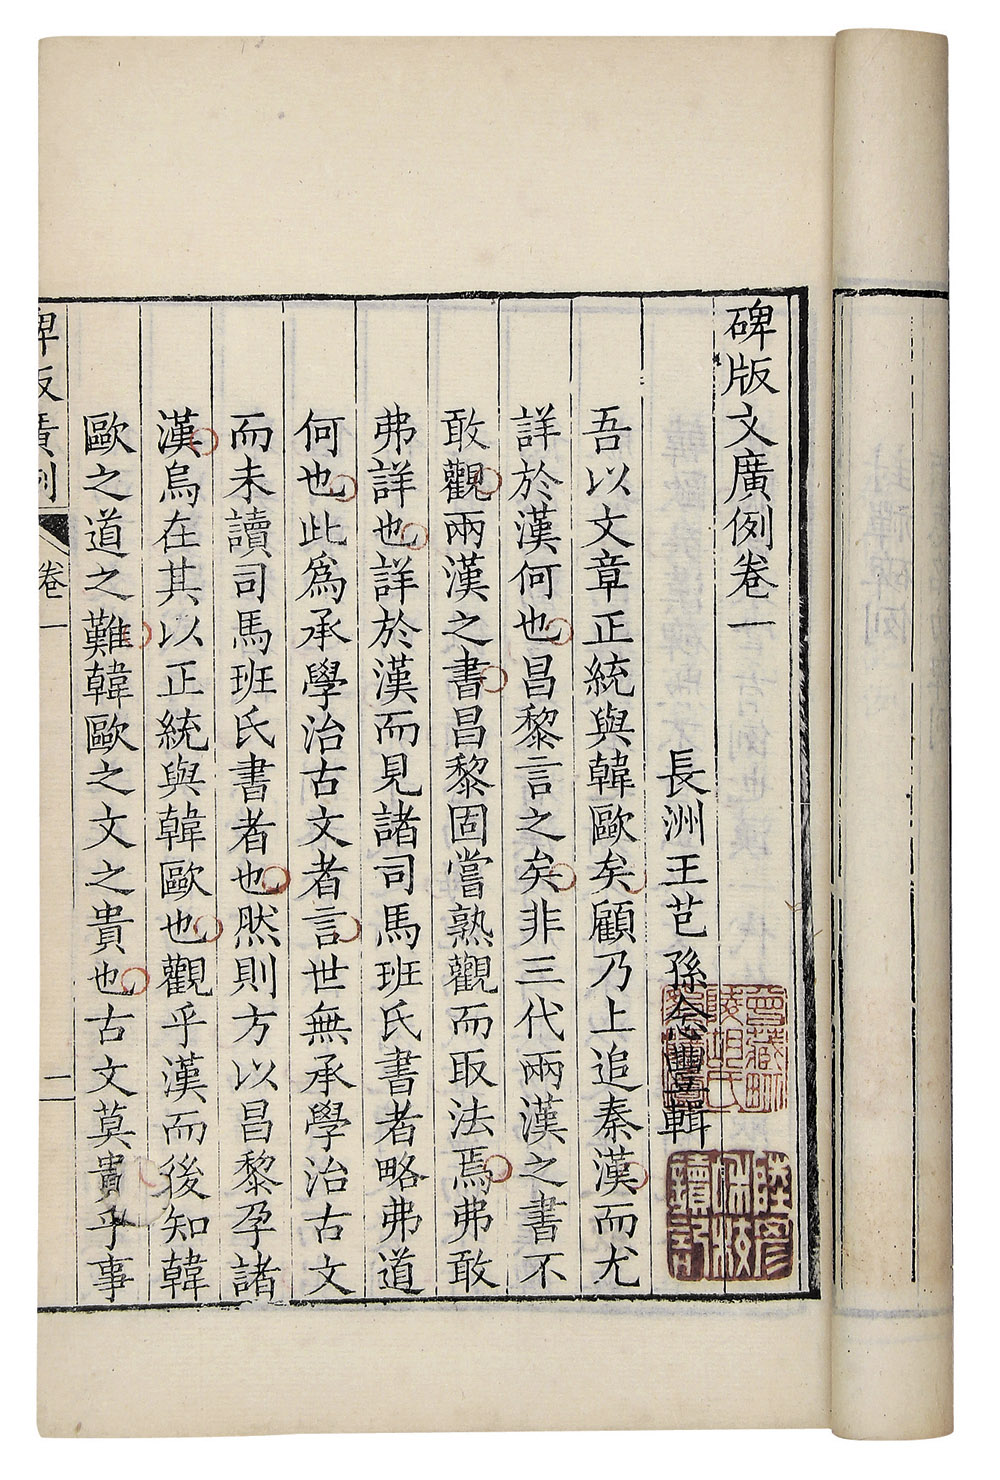 碑版文廣例卷一
長洲王芑孫念豐輯
吾以文章正統與韓歐矣顧乃上追秦漢而尤
詳於漢何也昌黎言之矣非三代兩漢之書不
敢觀兩漢之書昌黎固嘗熟觀而取法焉弗敢
弗詳也詳於漢而見諸司馬班氏書者略弗道
何也此爲承學治古文者言世無承學治古文
而未讀司馬班氏書者也然則方以昌黎孕諸
漢烏在其以正統與韓歐也觀乎漢而後知韓
歐之道之難韓歐之文之貴也古文莫貴乎事
碑版廣例 卷一 一
曾藏畍陵胡氏
陸僇讀記